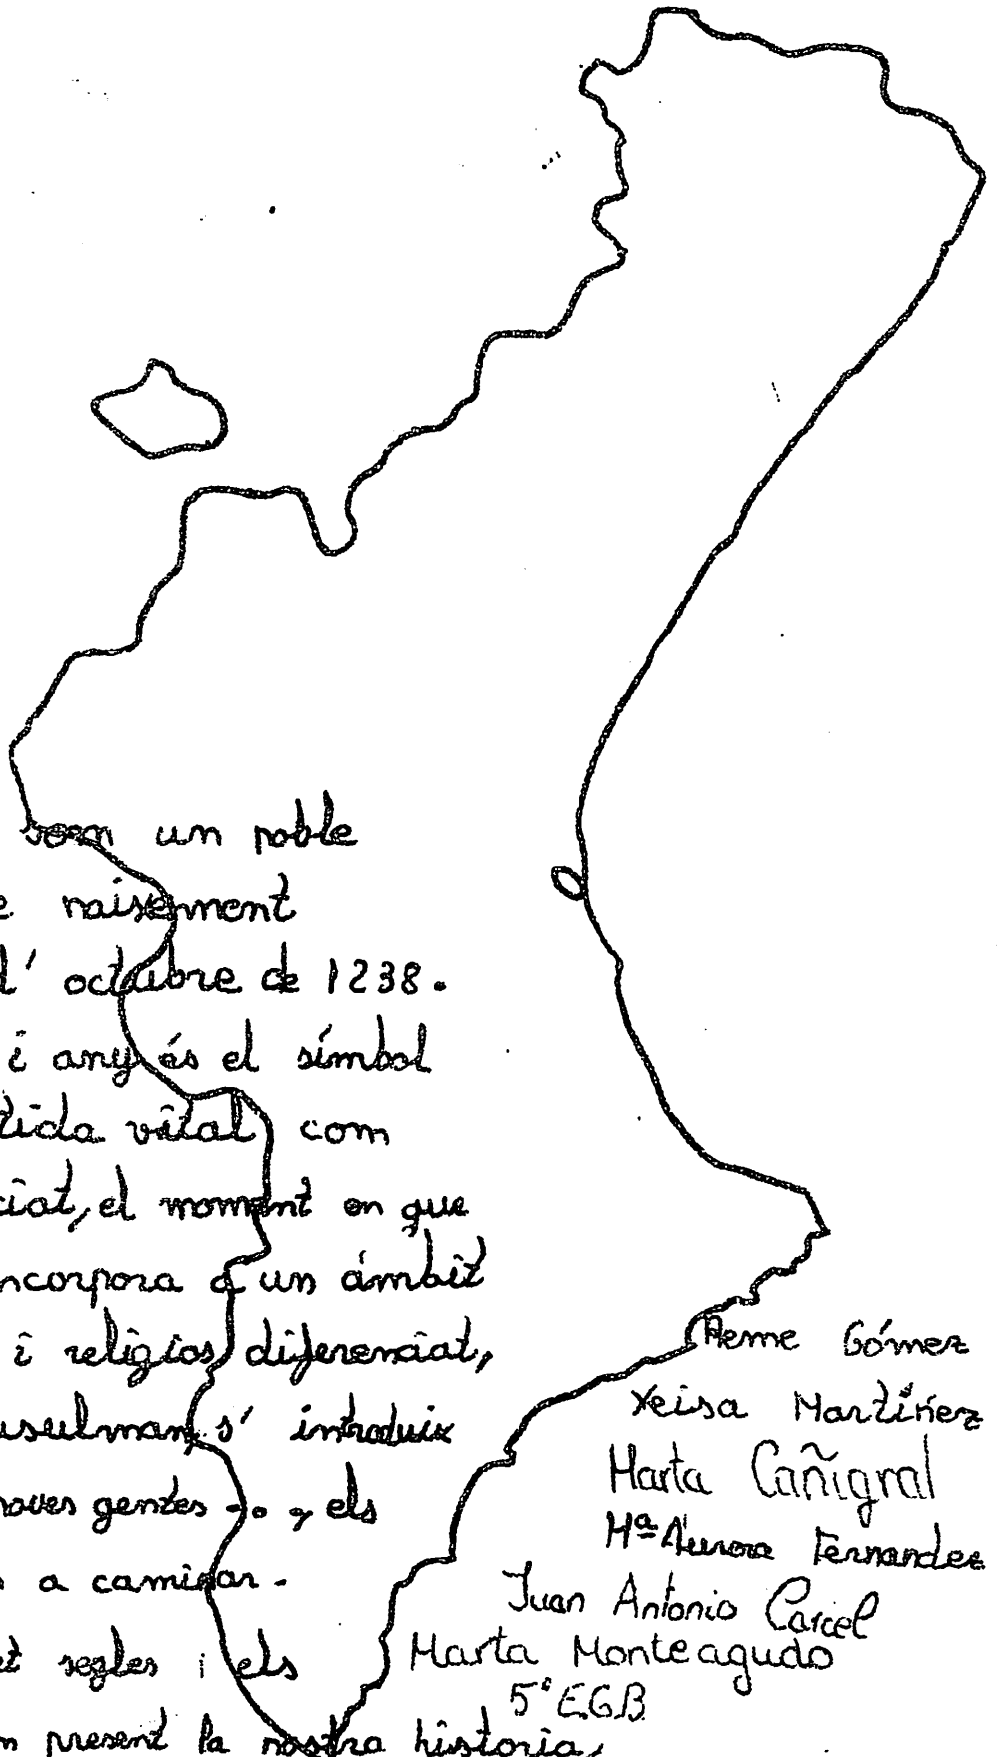 som un poble
e naisement
l' octubre de 1238.
i any és el símbol
tida vital com
ciat, el moment en que
ncorpora a un ámbit
i religios diferenciat,
usulman s' introduix
noves gentes . . , els
s a caminar.
et segles i els
m present la nostra historia,
Gómez
Xeisa Martínez
Marta Cañigral
Mª Aurora Fernandez
Juan Antonio Carcel
Marta Monteagudo
5º E.G.B.